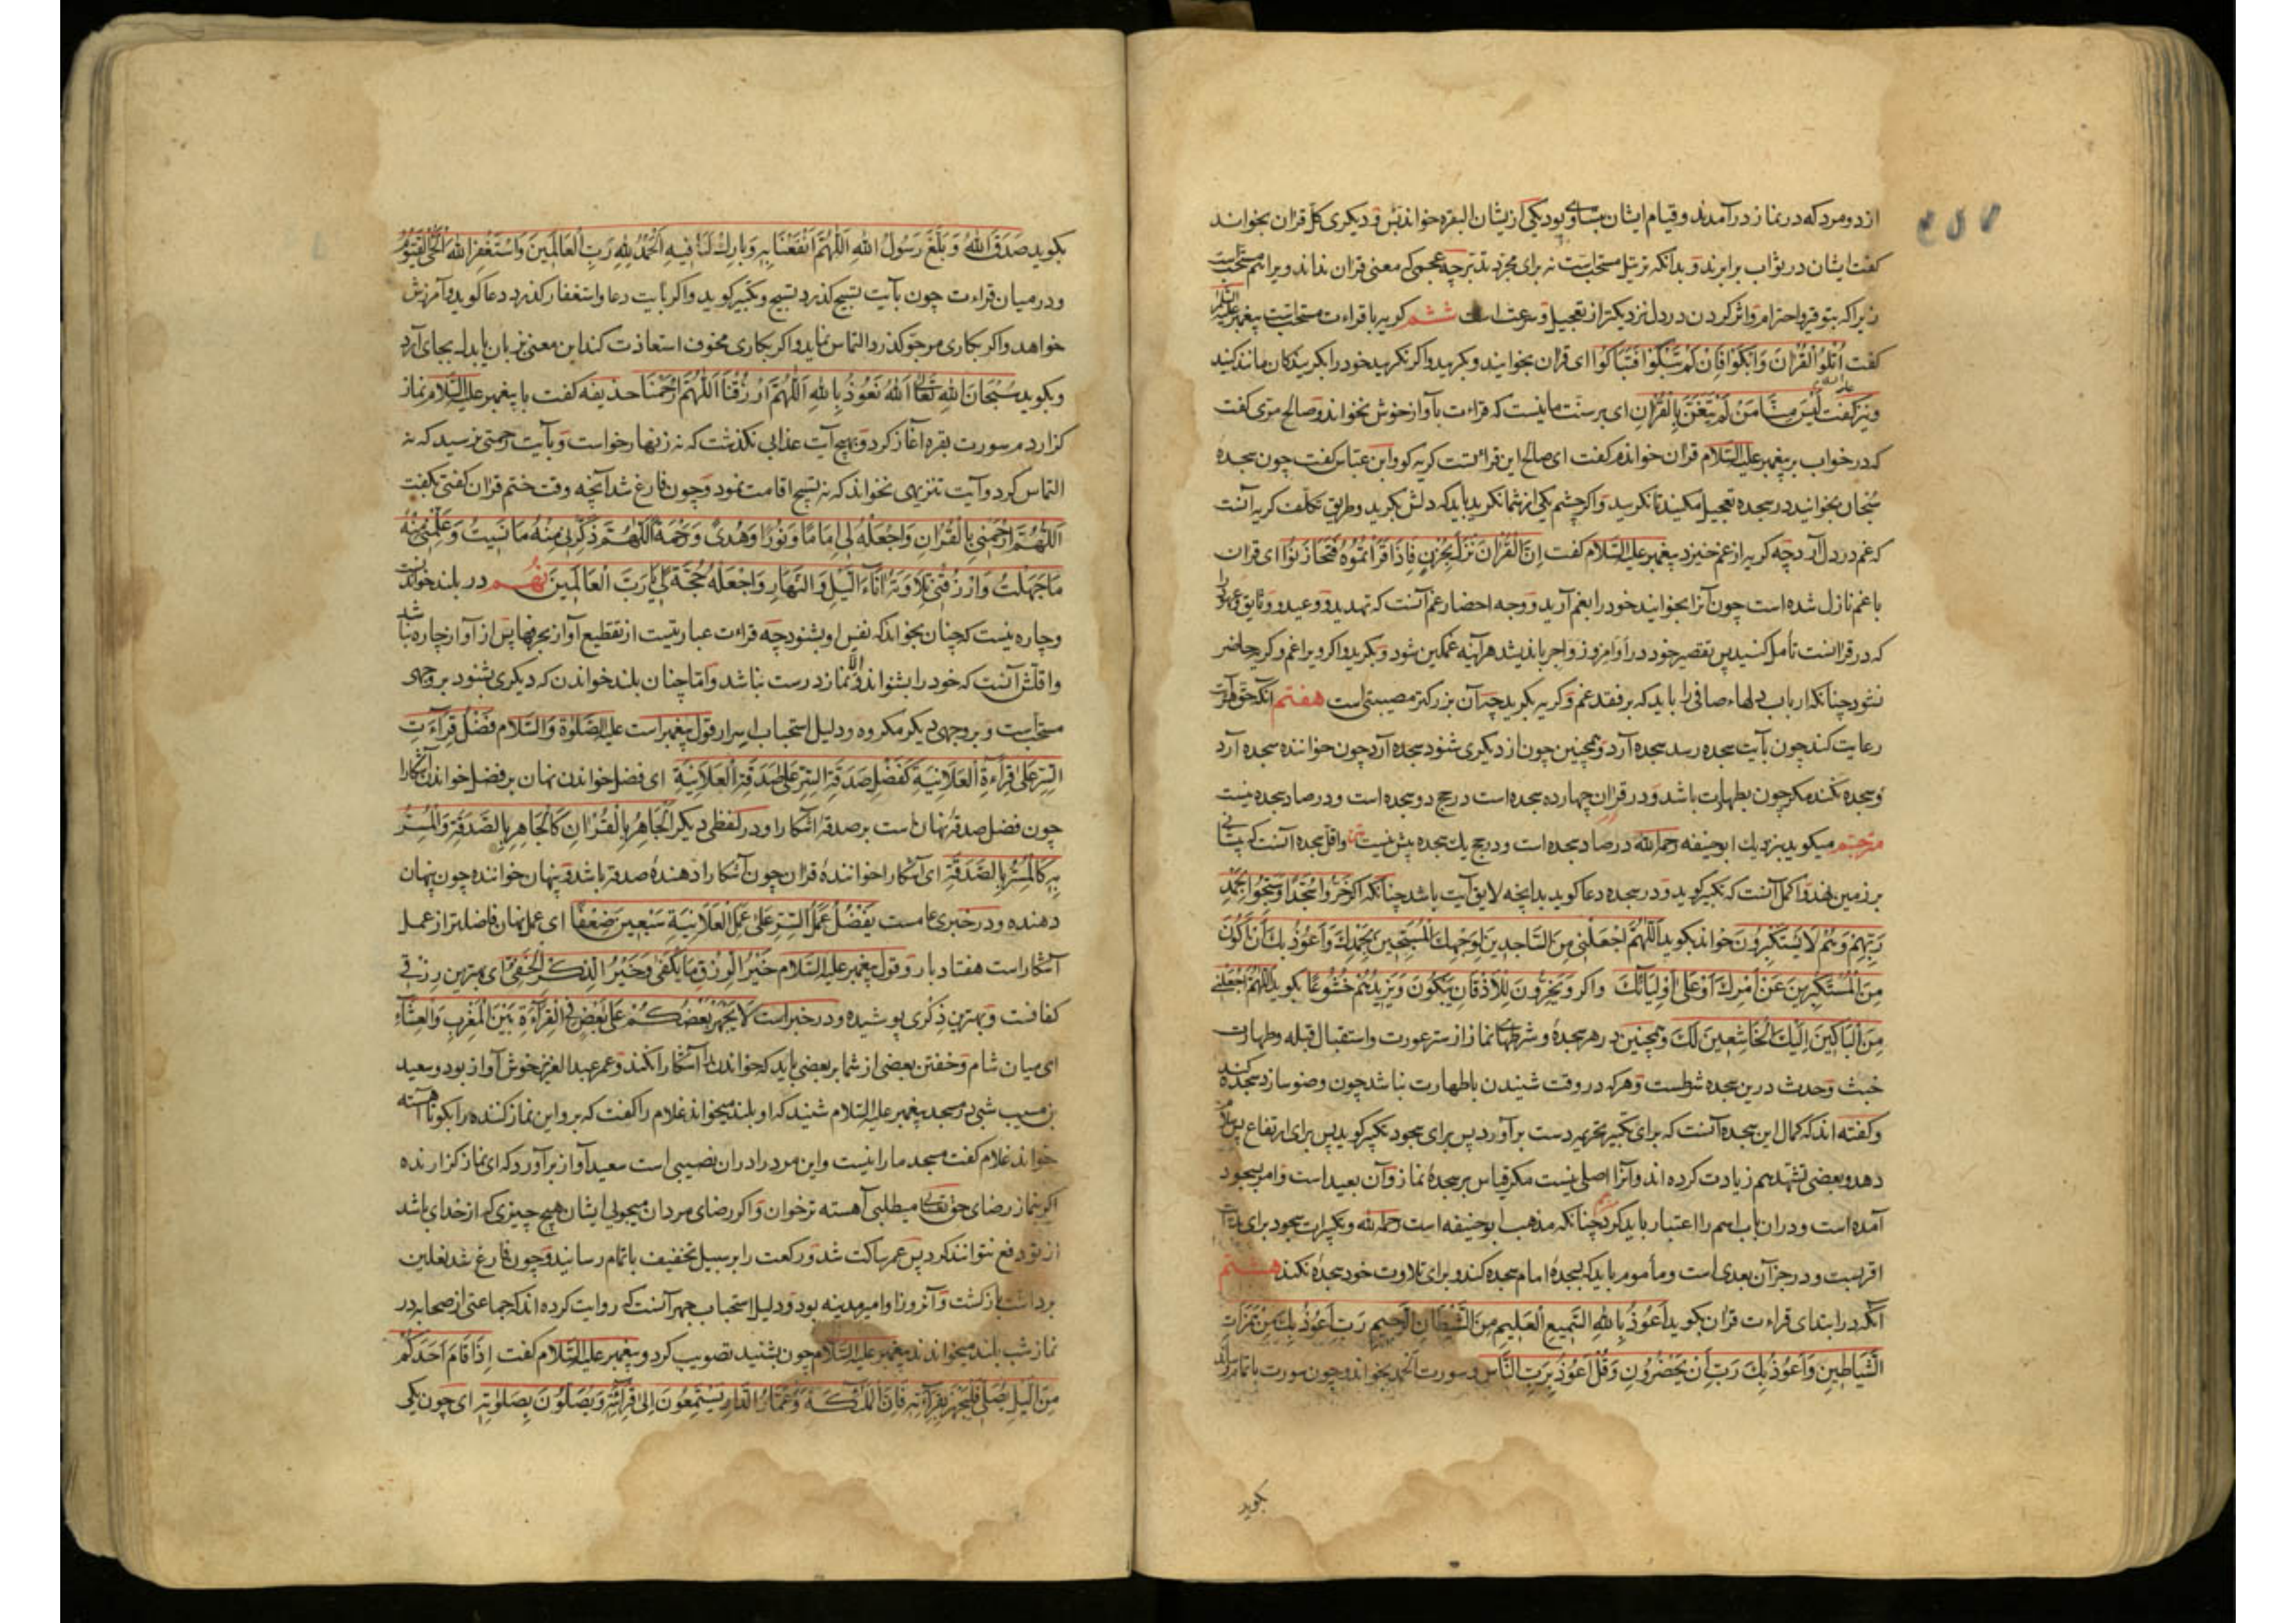 از دو مرد که در نماز درآمدند و قیام ایشان مساوی بود یکی ازیشان البقره خواند بس و دیگری کل قران بخواند
گفت ایشان در ثواب برابرند و بدانکه ترتیل مستحب است نه برای مجرد تدبر چه عجمی که معنی قران نداند ویرا هم مستحب است
زیرا که بتوقیر و احترام و اثر کردن در دل نزدیکتر از تعجیل و سرعت است ششم گریه با قراءت مستحب است پیغمبر علیه السلم
گفت اُتْلُوُا الْقُرْاٰنَ وَابْكَوْا فَاِنْ لَمْ تَبْكُوْا فَتَبَاكَوْا ای قران بخوانید و بگریید و اگر نگریید خود را بگریندگان مانند کنید
و نیز گفت لَیْسَ مِنَّا مَنْ لَمْ یَتَغَنَّ بِالْقُرْاٰنِ ای بر سنت ما نیست که قراءت بآواز خوش نخواند و صالح مری گفت
که در خواب بر پیغمبر علیه السلام قران خواندم گفت ای صالح این قراءتست گریه کو و ابن عباس گفت چون سجده
سُبْحان بخوانید در سجده تعجیل مکنید تا نگرید و اگر چشم یکی از شما نگرید باید که دلش بگرید و طریق تکلف گریه آنست
که غم در دل آرد چه گریه از غم خیزد پیغمبر علیه السلام گفت اِنَّ الْقُرْاٰنَ نَزَلَ بِحُزْنٍ فَاِذَا قَرَأْتُمُوْهُ فَتَحَازَنُوْا ای قران
با غم نازل شده است چون آنرا بخوانید خود را بغم آرید و وجه احضار غم آنست که تهدید و وعید و وثایق و عهود را
که در قرانست تأمل کند پس تقصیر خود در اوامر و زواجر باندیشد هرآینه غمگین شود و بگرید و اگر ویرا غم و گریه حاضر
نشود چنانکه ارباب دلهاء صافی را باید که بر فقد غم و گریه بگرید چه آن بزرگتر مصیبتی است هفتم آنکه حق آیت
رعایت کند چون بآیت سجده رسد سجده آرد و همچنین چون از دیگری شنود سجده آرد چون خواننده سجده آرد
و سجده نکند مگر چون بطهارت باشد و در قران چهارده سجده است در حج دو سجده است و در صاد سجده نیست
مترجم میگوید بنزدیك ابو حنیفه رحمه الله در صاد سجده است و در حج یك سجده بیش نیست و اقل سجده آنست که پیشانی
بر زمین نهد و اکمل آنست که تکبیر گوید و در سجده دعا گوید بدانچه لایق آیت باشد چنانکه اگر خَرُّوا سُجَّدًا وَسَبَّحُوا بِحَمْدِ
رَبِّهِمْ وَهُمْ لَا یَسْتَكْبِرُوْنَ خواند بگوید اَللّٰهُمَّ اجْعَلْنِی مِنَ السَّاجِدِیْنَ لِوَجْهِكَ الْمُسَبِّحِیْنَ بِحَمْدِكَ وَاَعُوْذُ بِكَ اَنْ اَكُوْنَ
مِنَ الْمُسْتَكْبِرِیْنَ عَنْ اَمْرِكَ اَوْ عَلٰی اَوْلِیَائِكَ و اگر وَیَخِرُّوْنَ لِلْاَذْقَانِ یَبْكُوْنَ وَیَزِیْدُهُمْ خُشُوْعًا بگوید اَللّٰهُمَّ اجْعَلْنِی
مِنَ الْبَاكِیْنَ اِلَیْكَ الْخَاشِعِیْنَ لَكَ و همچنین در هر سجده و شرطهای نماز از ستر عورت و استقبال قبله و طهارت
خبث و حدث درین سجده شرطست و هر که در وقت شنیدن باطهارت نباشد چون وضو سازد سجده کند
و گفته اند که کمال این سجده آنست که برای تکبیر تحریم دست برآورد پس برای سجود تکبیر گوید پس برای ارتفاع پس سلام
دهد و بعضی تشهد هم زیادت کرده اند و آنرا اصلی نیست مگر قیاس بر سجدۀ نماز و آن بعید است و امر بسجود
آمده است و در آن باب اسم را اعتبار باید کرد چنانکه مذهب ابو حنیفه است رحمه الله و تکبیرات سجود برای
اقربست و در جز آن بعدی است و مأموم باید که بسجدۀ امام سجده کند و برای تلاوت خود سجده نکند هشتم
آنکه در ابتدای قراءت قران بگوید اَعُوْذُ بِاللهِ السَّمِیْعِ الْعَلِیْمِ مِنَ الشَّیْطَانِ الرَّجِیْمِ رَبِّ اَعُوْذُ بِكَ مِنْ هَمَزَاتِ
الشَّیَاطِیْنِ وَاَعُوْذُ بِكَ رَبِّ اَنْ یَحْضُرُوْنِ وَقُلْ اَعُوْذُ بِرَبِّ النَّاسِ و سورت الحمد بخواند و چون سورت باتمام رساند
بگوید
بگوید صَدَقَ اللهُ وَبَلَّغَ رَسُوْلُ اللهِ اَللّٰهُمَّ انْفَعْنَا بِهِ وَبَارِكْ لَنَا فِیْهِ اَلْحَمْدُ لِلّٰهِ رَبِّ الْعَالَمِیْنَ وَاَسْتَغْفِرُ اللهَ الْحَیَّ الْقَیُّوْمَ
و در میان قراءت چون بآیت تسبیح گذرد تسبیح و تکبیر گوید و اگر بآیت دعا و استغفار گذرد دعا گوید و آمرزش
خواهد و اگر بکاری مرجوّ گذرد التماس نماید و اگر بکاری مخوف استعاذت کند این معنی بزبان یا بدل بجای آرد
و بگوید سُبْحَانَ اللهِ تَعَالٰی اَللهُ نَعُوْذُ بِاللهِ اَللّٰهُمَّ ارْزُقْنَا اَللّٰهُمَّ ارْحَمْنَا حذیفه گفت با پیغمبر علیه السلام نماز
گزاردم سورت بقره آغاز کرد و بهیچ آیت عذابی نگذشت که نه زنهار خواست و بآیت رحمتی نرسید که نه
التماس کرد و آیت تنزیهی نخواند که نه تسبیح اقامت نمود و چون فارغ شد آنچه وقت ختم قران گفتی بگفت
اَللّٰهُمَّ ارْحَمْنِی بِالْقُرْاٰنِ وَاجْعَلْهُ لِی اِمَامًا وَنُوْرًا وَهُدًی وَرَحْمَةً اَللّٰهُمَّ ذَكِّرْنِی مِنْهُ مَا نَسِیْتُ وَعَلِّمْنِی مِنْهُ
مَا جَهِلْتُ وَارْزُقْنِی تِلَاوَتَهُ اٰنَاءَ اللَّیْلِ وَالنَّهَارِ وَاجْعَلْهُ حُجَّةً لِی یَا رَبَّ الْعَالَمِیْنَ نهم در بلند خواندنست
و چاره نیست که چنان بخواند که نفس او بشنود چه قراءت عبارتیست از تقطیع آواز بحرفها پس از آواز چاره نباشد
و اقلش آنست که خود را بشنواند و الا نماز درست نباشد و اما چنان بلند خواندن که دیگری بشنود بر وجهی
مستحب است و بر وجهی دیگر مکروه و دلیل استحباب اسرار قول پیغمبر است علیه الصلوة والسلام فَضْلُ قِرَاءَتِ
السِّرِّ عَلٰی قِرَاءَةِ الْعَلَانِیَةِ كَفَضْلِ صَدَقَةِ السِّرِّ عَلٰی صَدَقَةِ الْعَلَانِیَةِ ای فضل خواندن نهان بر فضل خواندن آشکارا
چون فضل صدقۀ نهان است بر صدقۀ آشکارا و در لفظی دیگر اَلْجَاهِرُ بِالْقُرْاٰنِ كَالْجَاهِرِ بِالصَّدَقَةِ وَالْمُسِرُّ
بِهِ كَالْمُسِرِّ بِالصَّدَقَةِ ای آشکارا خوانندۀ قران چون آشکارا دهندۀ صدقه باشد و پنهان خواننده چون پنهان
دهنده و در خبری عامست یَفْضُلُ عَمَلُ السِّرِّ عَلٰی عَمَلِ الْعَلَانِیَةِ سَبْعِیْنَ ضِعْفًا ای عمل نهان فاضلتر از عمل
آشکار است هفتاد بار و قول پیغمبر علیه السلام خَیْرُ الرِّزْقِ مَا یَكْفِی وَخَیْرُ الذِّكْرِ الْخَفِیُّ ای بهترین رزقی
کفافست و بهترین ذکری پوشیده و در خبر است لَا یَجْهَرْ بَعْضُكُمْ عَلٰی بَعْضٍ فِی الْقِرَاءَةِ بَیْنَ الْمَغْرِبِ وَالْعِشَاءِ
ای میان شام و خفتن بعضی از شما بر بعضی باید که خواندن را آشکارا نکند و عمر عبدالعزیز خوش آواز بود و سعید
بن مسیب شبی در مسجد پیغمبر علیه السلام شنید که او بلند میخواند غلام را گفت که برو این نماز کننده را بگو تا آهسته
خواند غلام گفت مسجد ما را نیست و این مرد را دران نصیبی است سعید آواز برآورد که ای نماز گزارنده
اگر بنماز رضای حق تعالی میطلبی آهسته تر خوان و اگر رضای مردمان میجویی ایشان هیچ چیزی که از خدای باشد
از تو دفع نتوانند کرد پس عمر ساکت شد و رکعت را بر سبیل تخفیف باتمام رسانید و چون فارغ شد نعلین
برداشت و بازگشت و آنروز او امیر مدینه بود و دلیل استحباب جهر آنست که روایت کرده اند که جماعتی از صحابه در
نماز شب بلند میخواندند پیغمبر علیه السلام چون بشنید تصویب کرد و پیغمبر علیه السلام گفت اِذَا قَامَ اَحَدُكُمْ
مِنَ اللَّیْلِ یُصَلِّی فَلْیَجْهَرْ بِقِرَاءَتِهِ فَاِنَّ الْمَلٰئِكَةَ وَعُمَّارَ الدَّارِ یَسْتَمِعُوْنَ اِلٰی قِرَاءَتِهِ وَیُصَلُّوْنَ بِصَلٰوتِهِ ای چون یکی